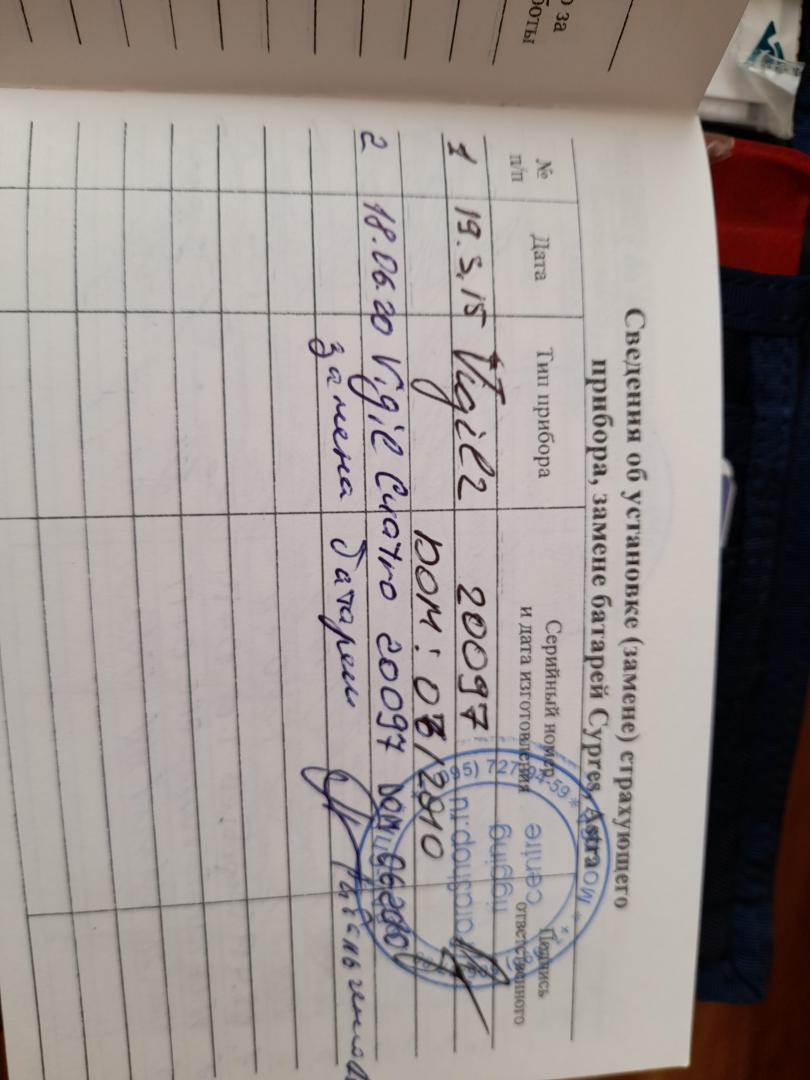 о за
боты
Сведения об установке (замене) страхующего
прибора, замене батарей Cypres, Astra
№ п/п Дата Тип прибора Серийный номер и дата изготовления Подпись ответственного
1 19.5.15 Vigil2 20097
DOM: 08/2010
2 18.06.20 Vigil Cuatro 20097 DOM
замена батареи
95) 727-94-59 *
centre
rigging